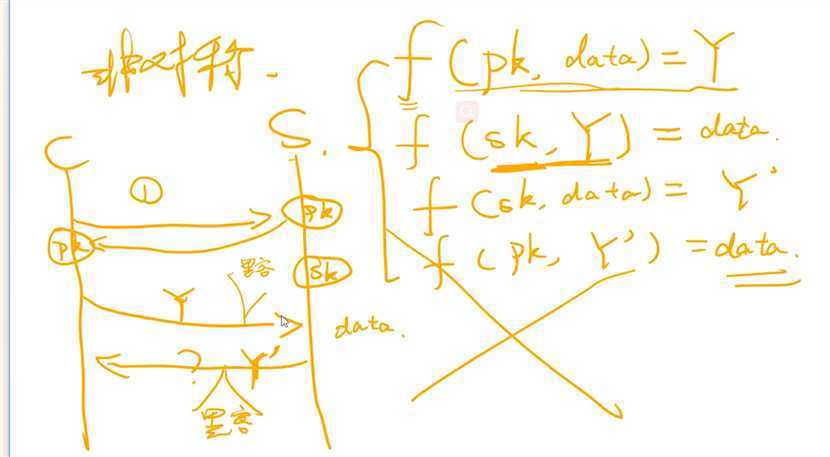 非对称.
f (pk, data) = Y
S.
f (sk, Y) = data.
C
①
f (sk, data) = Y'
pk
pk
f (pk, Y') = data.
黑客
sk
Y
data.
? Y'
黑客